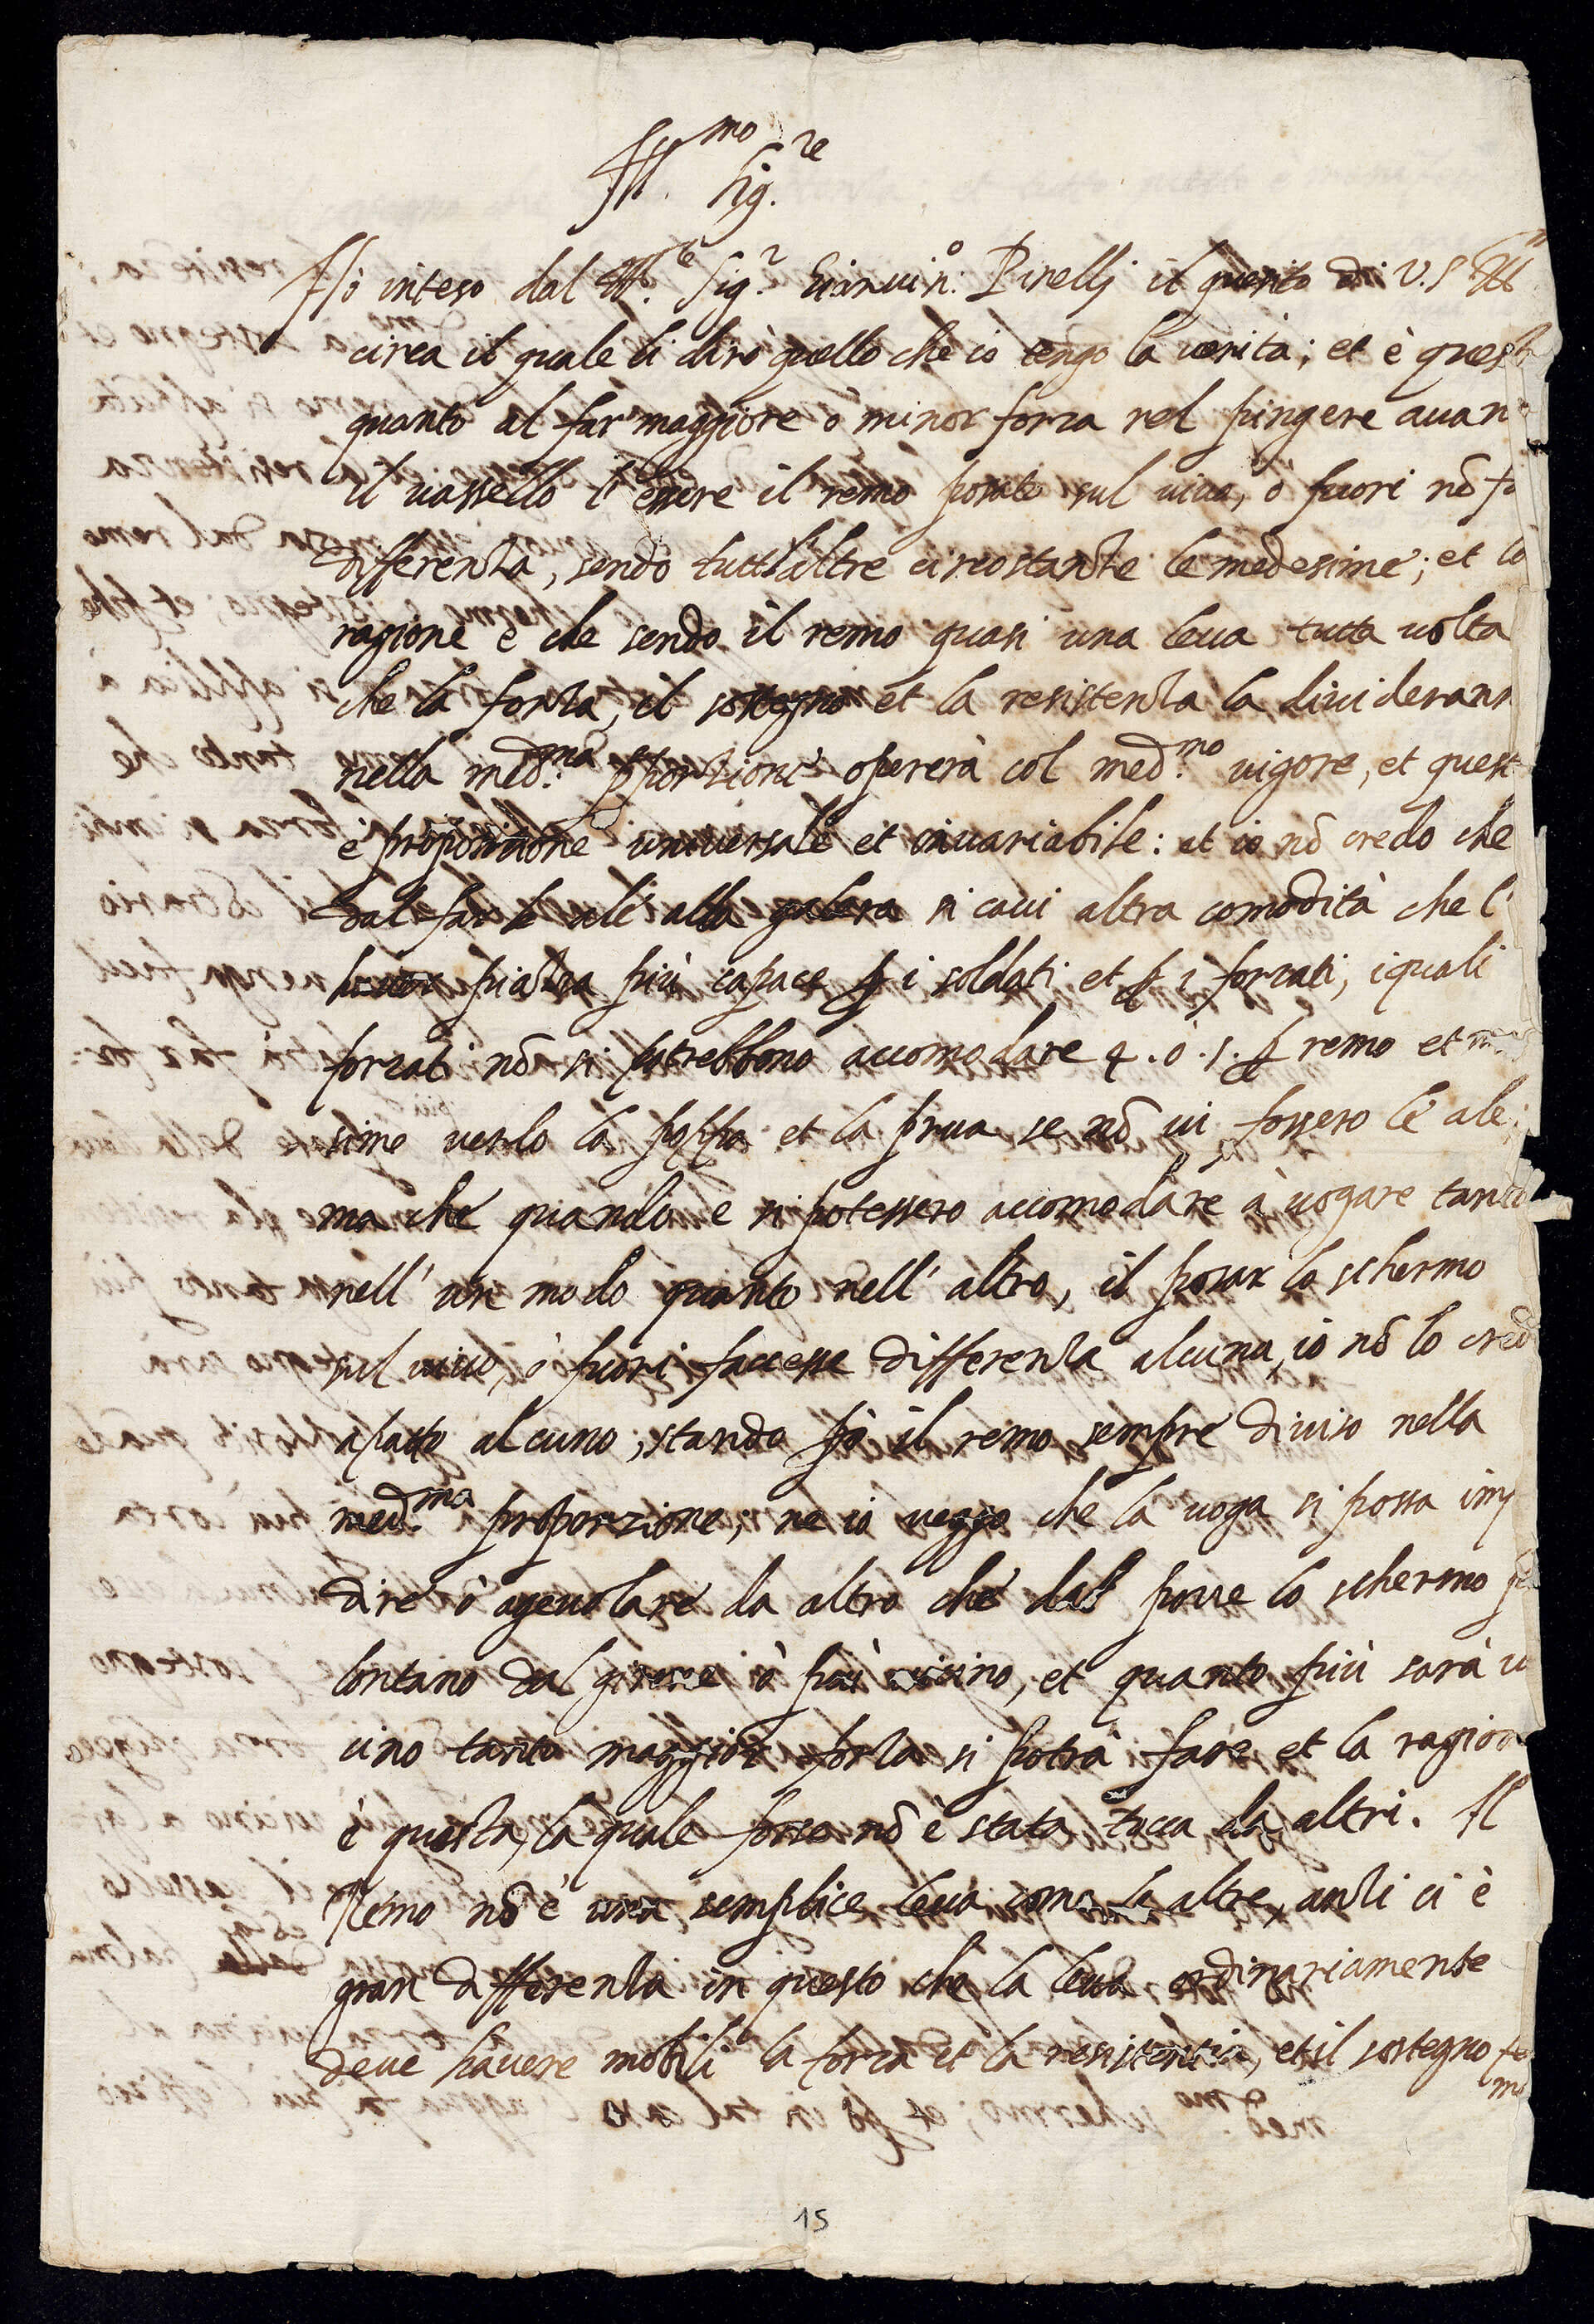 Ill.mo Sig.re
Hò inteso dal M.to Ill.re Sig.r Gianvin.o Pinelli il quesito di V.S. Ill.
circa il quale li dirò quello che io tengo la verità; et è quest
quanto al far maggiore ò minor forza nel pingere avan
il vassello l'essere il remo posato sul vivo, ò fuori nõ fa
differenza, sendo tutte l'altre circostanze le medesime; et la
ragione è che sendo il remo quasi una leva tutta volta
che la forza, il sostegno et la resistenza la dividerann
nella med.ma pporzione opererà col med.mo vigore, et quest
è propositione universale et invariabile: et io nõ credo che
dal far le ale alla galera si cavi altra comodità che l'
haver piazza più capace p i soldati et p i forzati, i quali
forzati nõ si potrebbono accomodare 4. ò .5. p remo et mas
sime verso la poppa et la prua se nõ vi fossero le ale;
ma che quando e si potessero accomodare à vogare tanto
nell' un modo quanto nell' altro, il posar lo schermo
sul vivo, ò fuori facesse differenza alcuna, io nõ lo cred
a patto alcuno, stando pò il remo sempre diviso nella
med.ma proporzione; ne io veggo che la voga si possa imp
dire ò agevolare da altro che dal porre lo schermo più
lontano dal girone ò più vicino, et quanto più sarà vi
cino tanto maggior forza si potrà fare et la ragion
è questa, la quale forse nõ è stata tocca da altri. Il
Remo nõ è una semplice leva come le altre, anzi ci è
gran differenza in questo che la leva ordinariamente
deve havere mobili la forza et la resistentia, et il sostegno fe
15